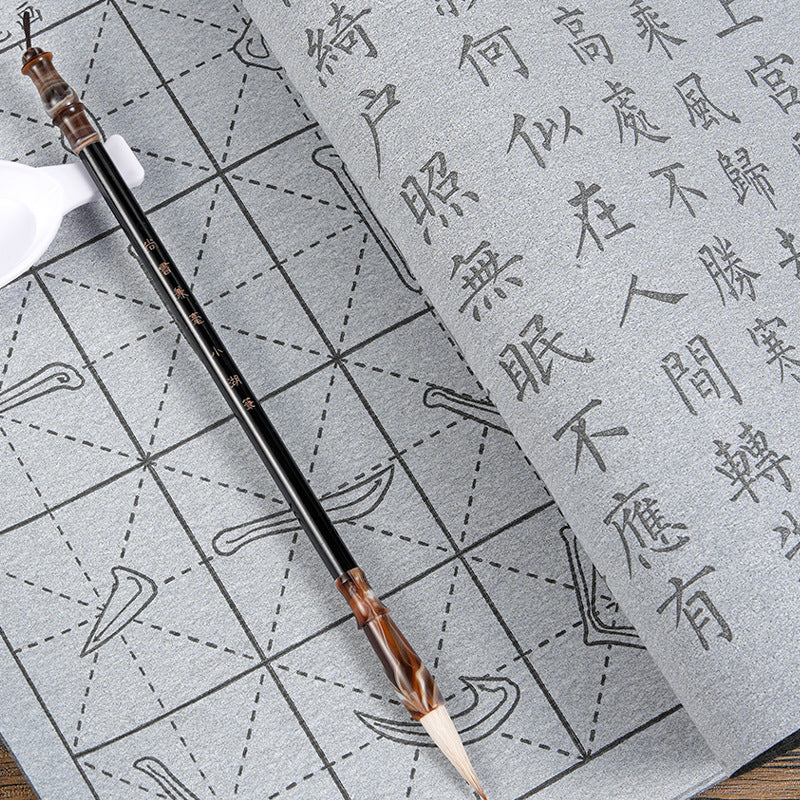 上宮
乘風歸去
高處不勝寒
何似在人間轉
綺戶照無眠不應有
尚書兼毫小湖筆